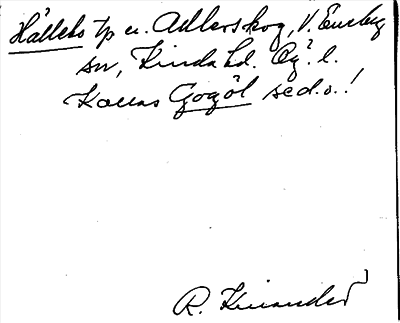 Hällebo tp u. Adlerskog, V. Eneby
sn, Kinda hd. Ög. l.
Kallas Gogöl se d.o.!
R. Kinander